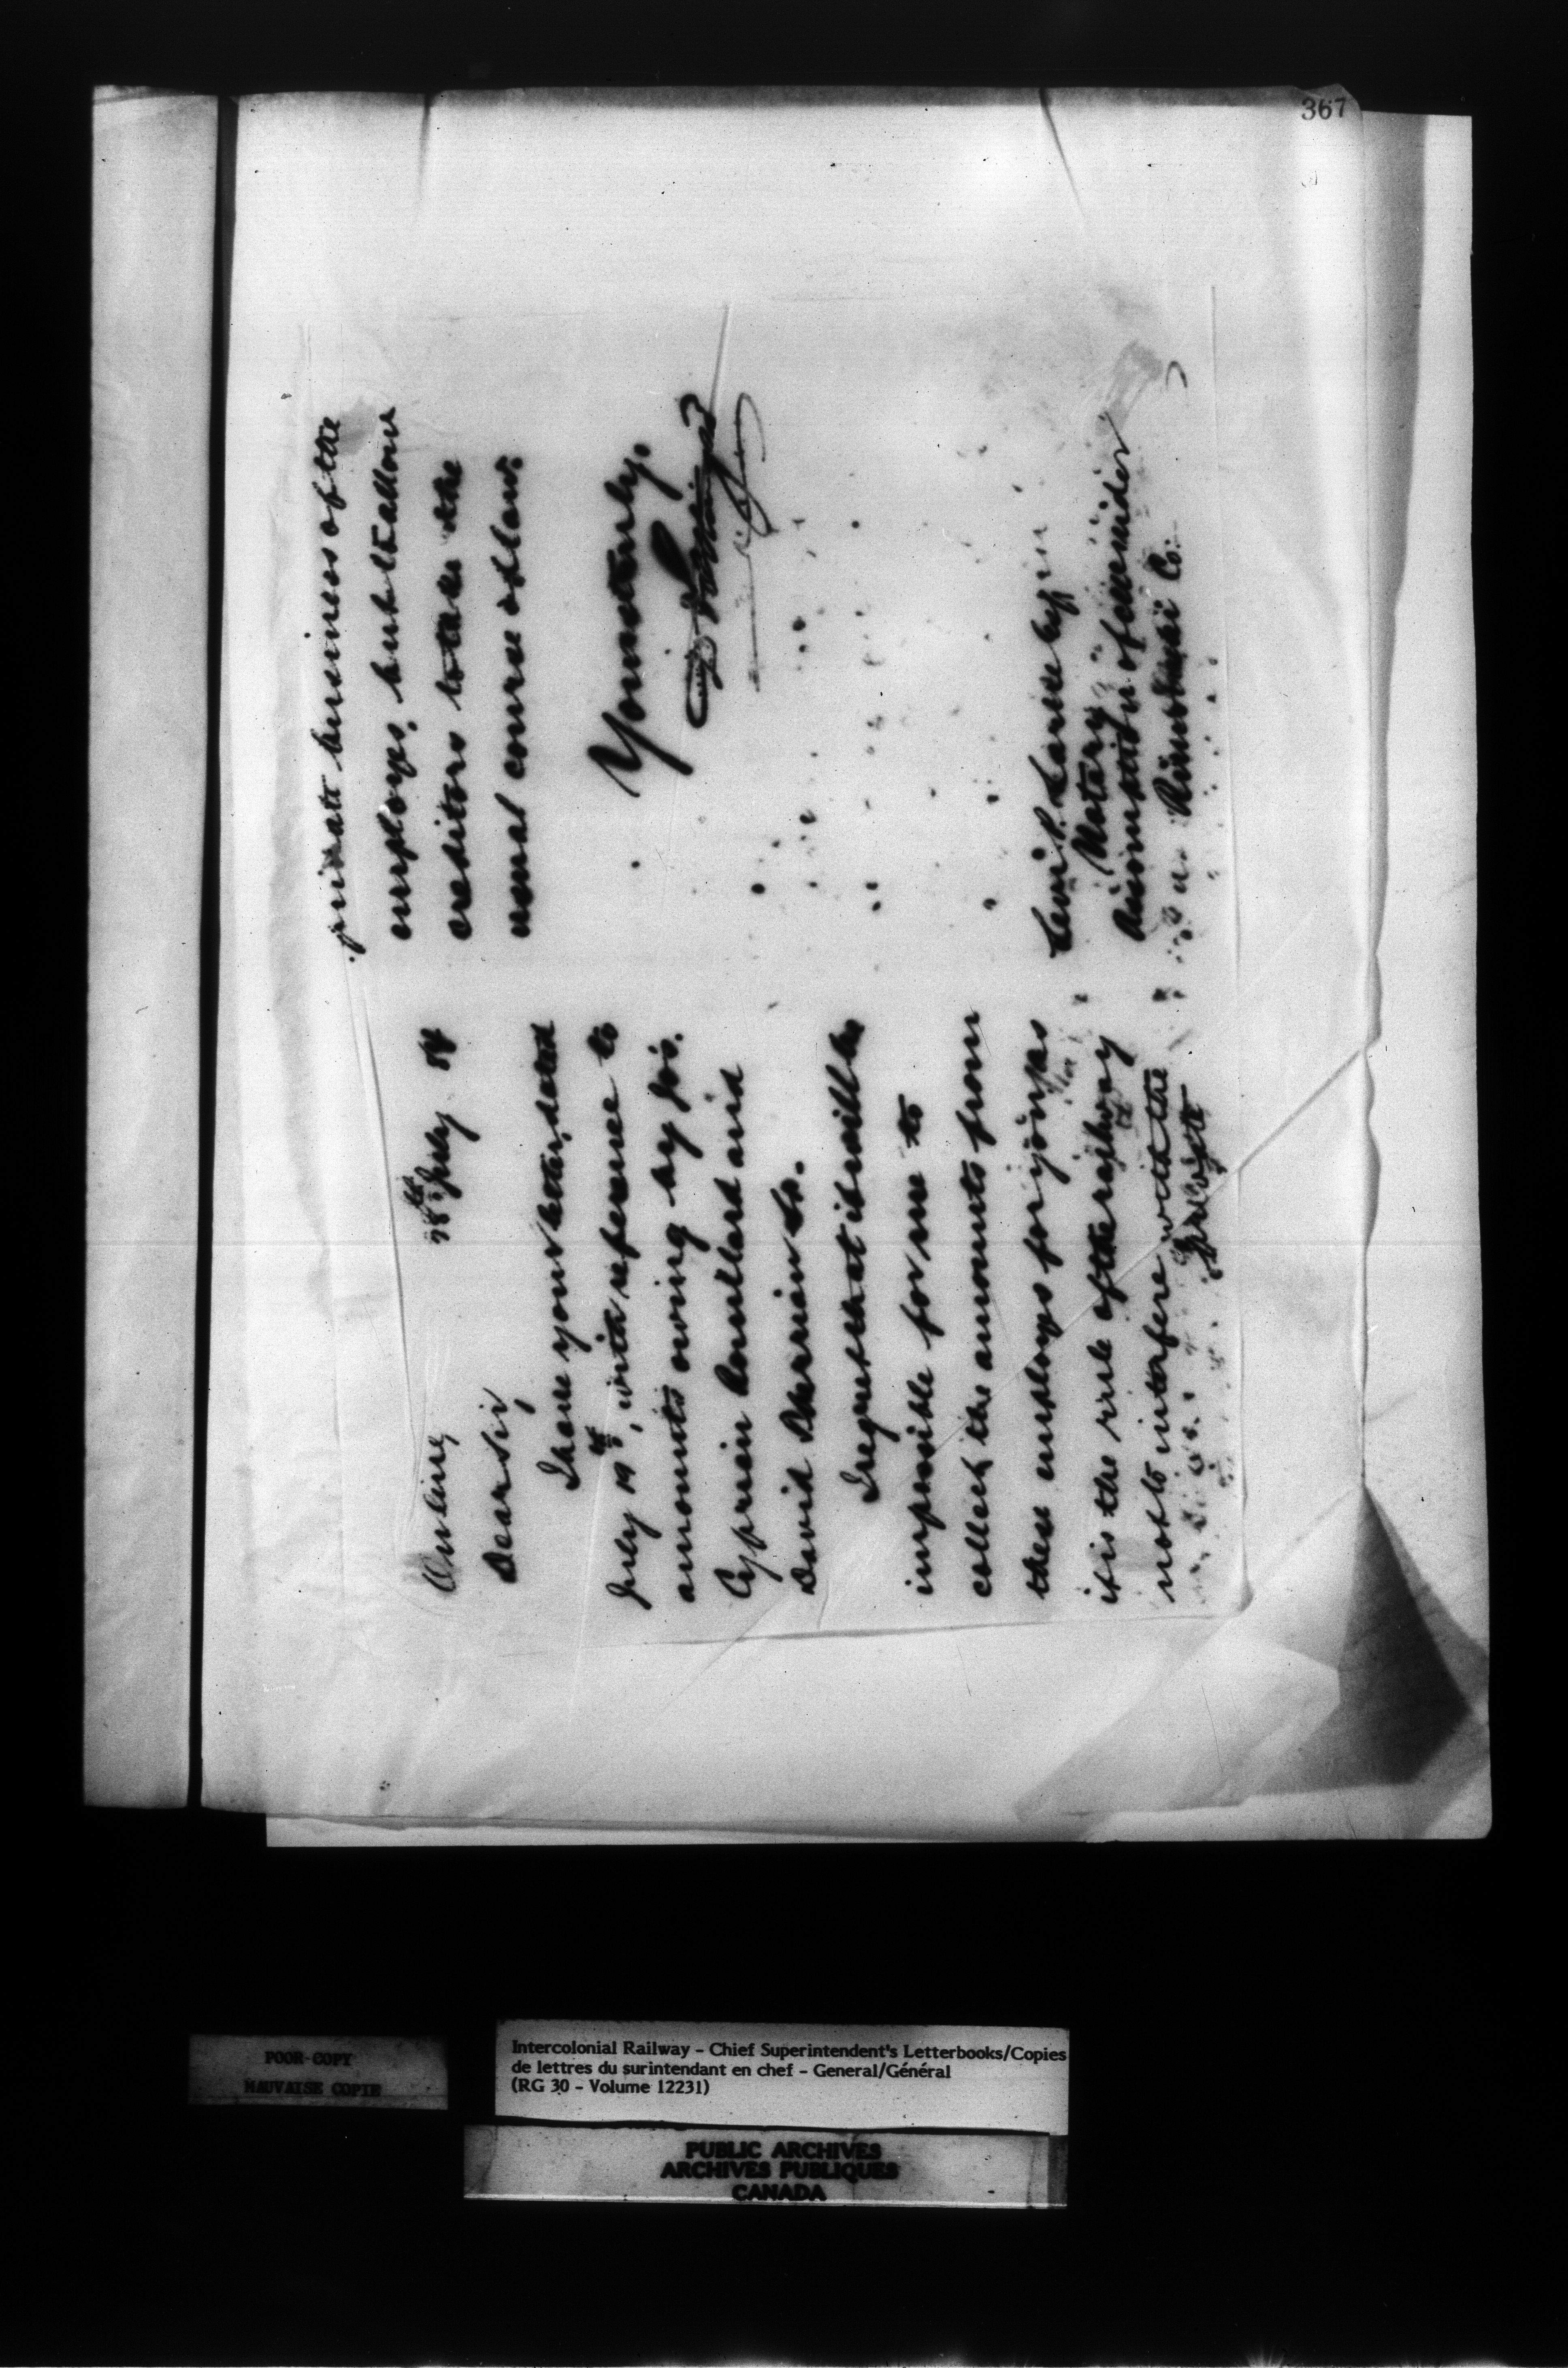 367
28th July 84
Dear Sir,
I have your letter, dated
July 19th, with reference to
amounts owing by Jos.
Cyprien Rouillard and
David Therrien &c.
I regret that it will be
impossible for me to
collect the amounts from
these employes for you, as
it is the rule of the railway
not to interfere with the
private
private business of the
employes, but to allow
creditors to take the
usual course of law.
Yours truly,
Notary
Assomption of
Rimouski Co.
POOR COPY
MAUVAISE COPIE
Intercolonial Railway - Chief Superintendent's Letterbooks/Copies
de lettres du surintendant en chef - General/Général
(RG 30 - Volume 12231)
PUBLIC ARCHIVES
ARCHIVES PUBLIQUES
CANADA